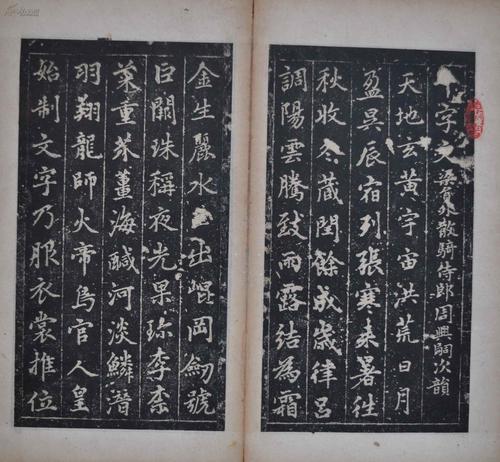 千字文 梁員外散騎侍郎周興嗣次韻
天地玄黃宇宙洪荒日月
盈昃辰宿列張寒来暑往
秋收冬藏閏餘成歲律呂
調陽雲騰致雨露結為霜
金生麗水玉出崐岡劒號
巨闕珠稱夜光果珎李柰
菜重芥薑海鹹河淡鱗潛
羽翔龍師火帝鳥官人皇
始制文字乃服衣裳推位